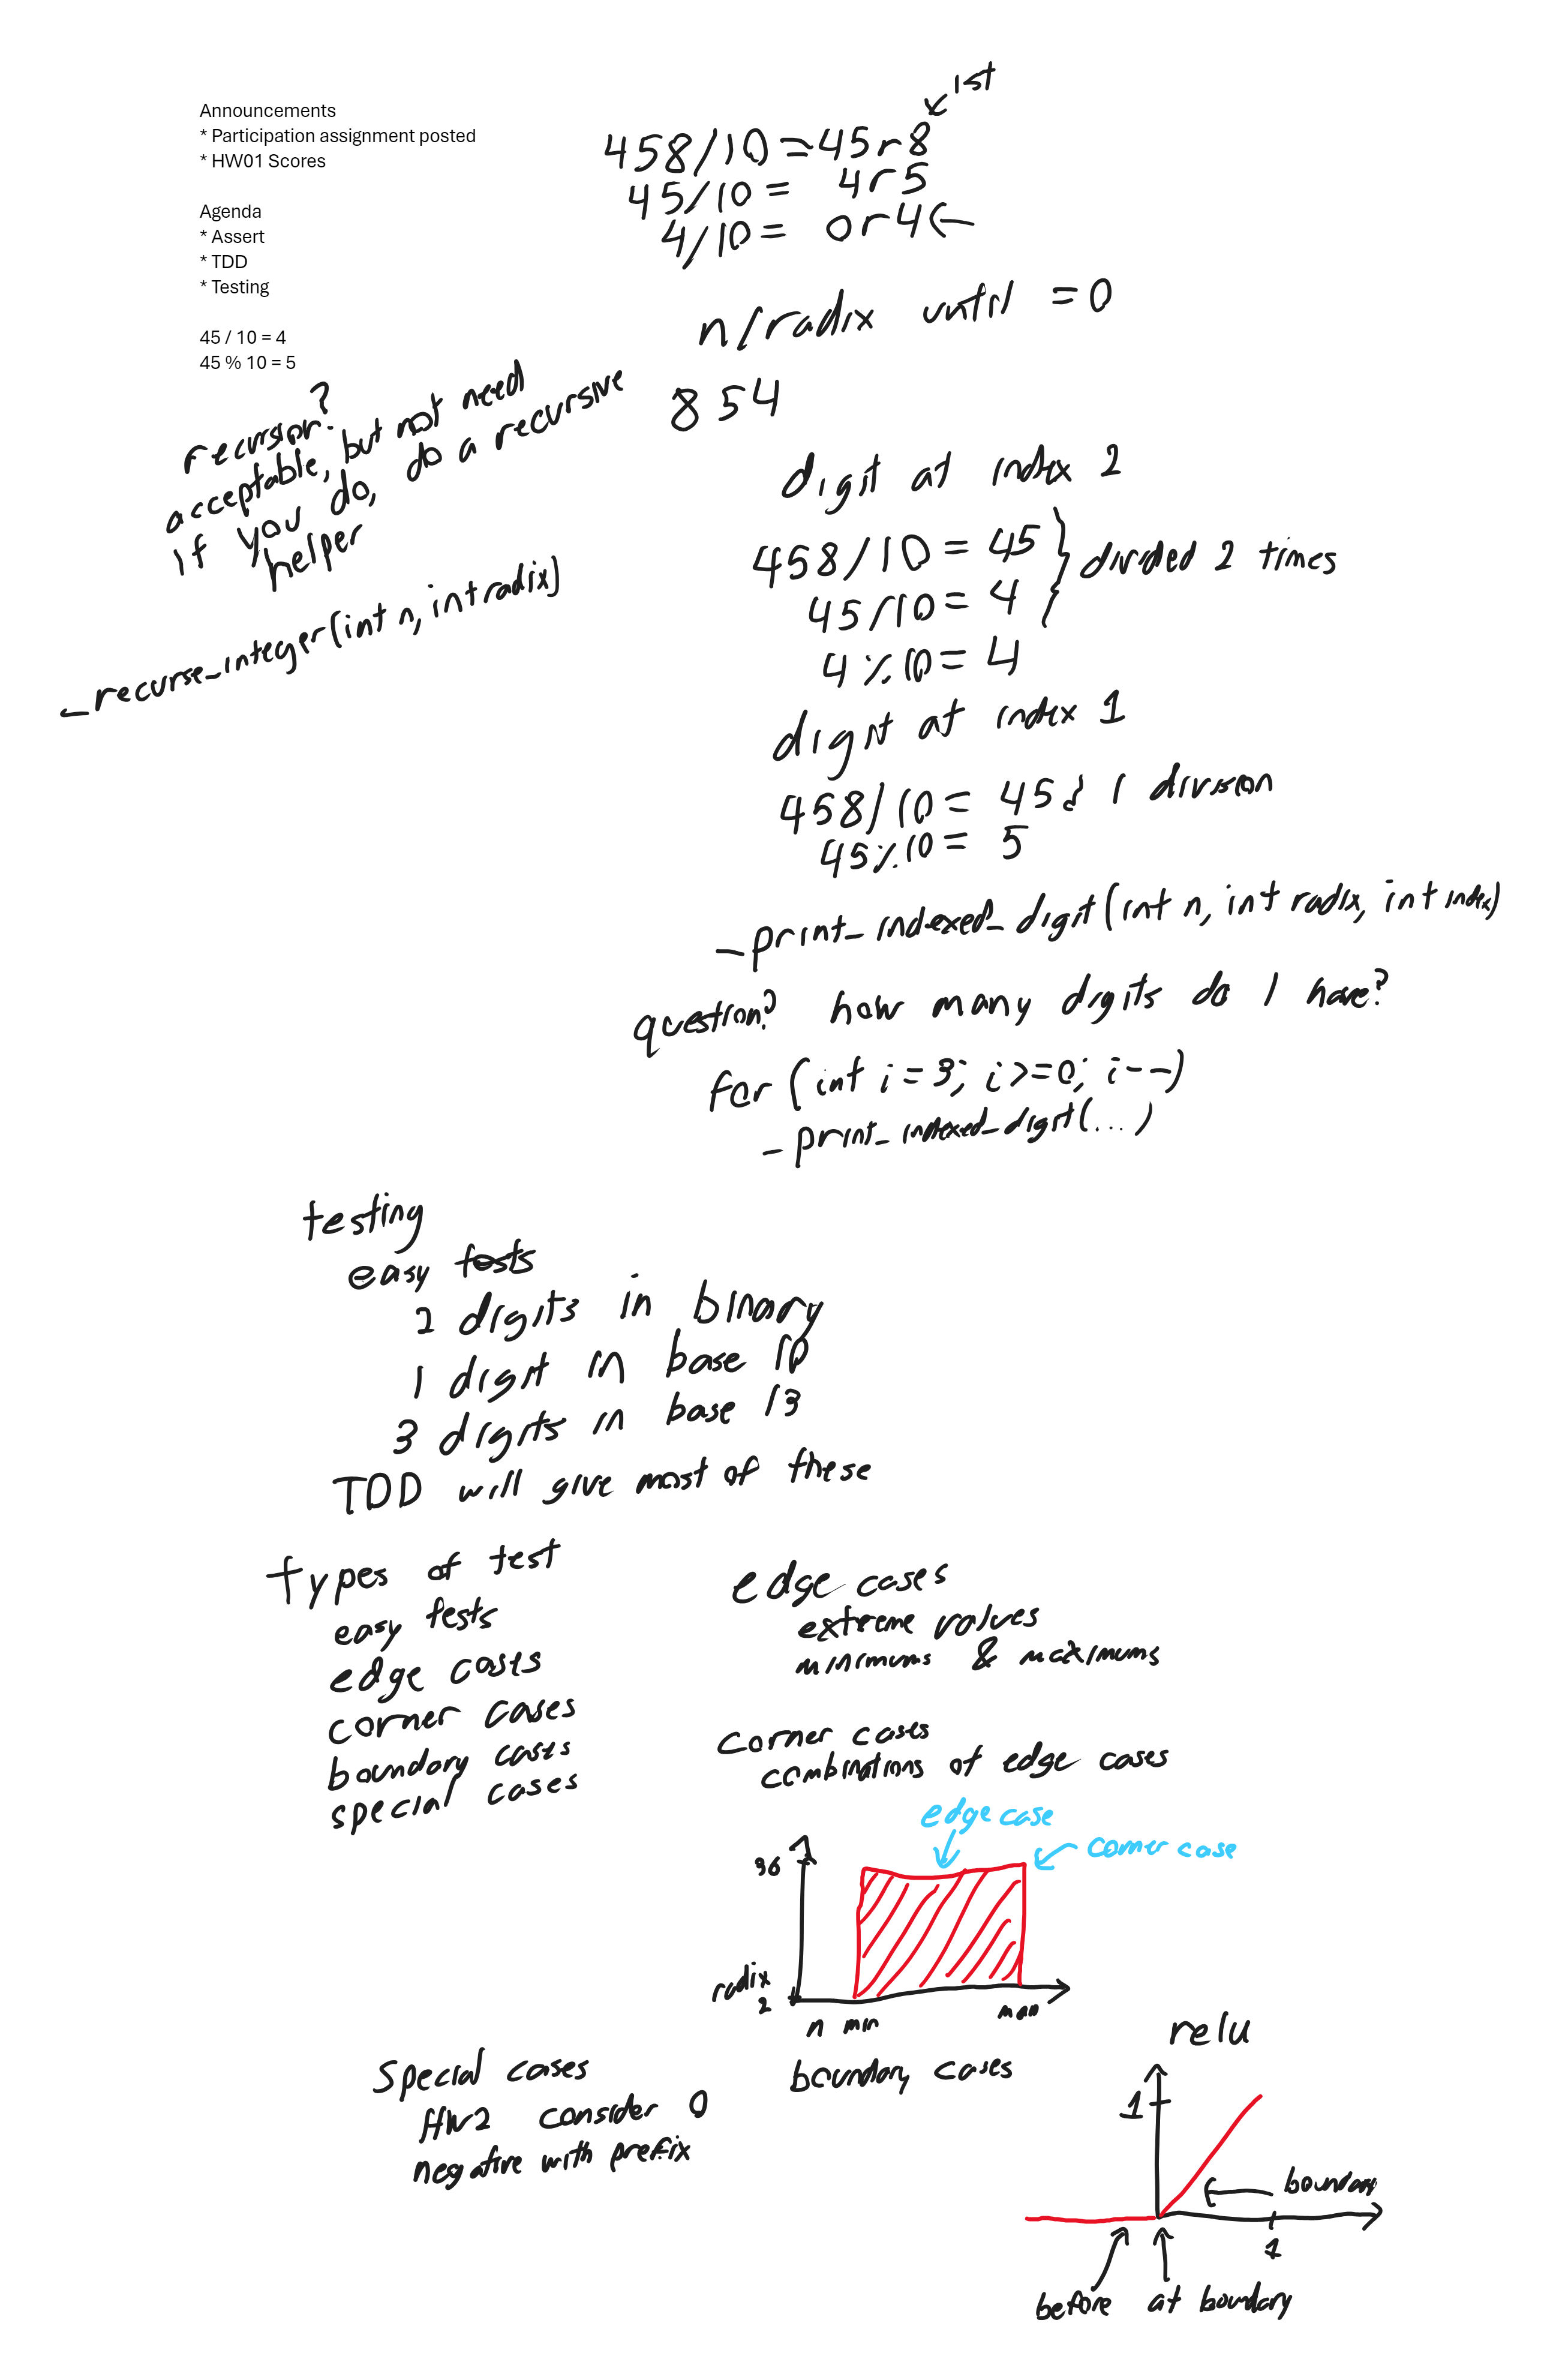 Announcements
* Participation assignment posted
* HW01 Scores
Agenda
* Assert
* TDD
* Testing
45 / 10 = 4
45 % 10 = 5
1st
458/10=45r8
45/10= 4r5
4/10= 0r4
n/radix until =0
854
recursion?
acceptable, but not need
if you do, do a recursive
helper
_recurse_integer(int n, int radix)
digit at index 2
458/10=45
45/10=4
divided 2 times
4%10=4
digit at index 1
458/10=45 } 1 division
45%10= 5
_print_indexed_digit(int n, int radix, int index)
question? how many digits do I have?
for (int i=3; i>=0; i--)
_print_indexed_digit(...)
testing
easy tests
2 digits in binary
1 digit in base 10
3 digits in base 13
TDD will give most of these
types of test
easy tests
edge cases
corner cases
boundary cases
special cases
edge cases
extreme values
minimums & maximums
corner cases
combinations of edge cases
edge case
corner case
36
radix
2
n min
boundary cases
special cases
HW2 consider 0
negative with prefix
relu
1
boundary
1
before at boundary